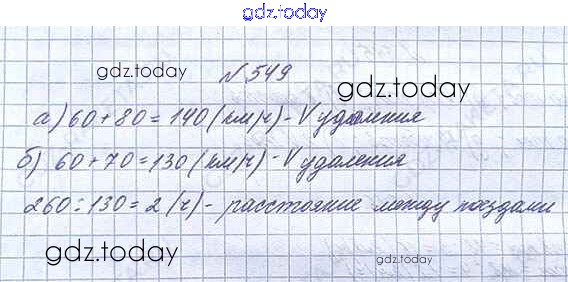 gdz.today
gdz.today
№ 549
gdz.today
а) 60 + 80 = 140 (км/ч) - V удаления
б) 60 + 70 = 130 (км/ч) - V удаления
260 : 130 = 2 (ч) - расстояние между поездами
gdz.today
gdz.today